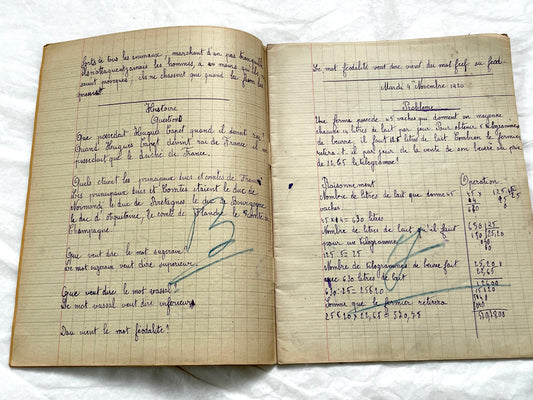 forts de tous les animaux, marchant d'un pas tranquille
n'attaquent jamais les hommes, à moins qu'ils ne
soient provoqués. Ils ne chassent que quand la faim les
Histoire
Question
Que possédait Hugues Capet quand il devint roi?
Quand Hugues Capet devint roi de France il ne
possédait que le duché de France.
Quels étaient les principaux ducs et comtes de France
Les principaux ducs et Comtes étaient le duc de
Normandie, le duc de Bretagne le duc de Bourgogne
le duc d'Aquitaine, le comte de Flandre, le Comte de
Champagne.
Que veut dire le mot suzerain?
Le mot suzerain veut dire supérieur.
Que veut dire le mot vassal?
Le mot vassal veut dire inférieur.
D'où vient le mot féodalité?
B
Le mot féodalité veut dire vient du mot fief ou féod.
Mardi 9 Novembre 1920
Problème
Une ferme possède 45 vaches qui donnent en moyenne
chacune 14 litres de lait par jour. Pour obtenir 1 kilogramme
de beurre, il faut 25 litres de lait. Combien le fermier
retirera-t-il par jour de la vente de son beurre au prix
de 22,65 le kilogramme?
Raisonnement
Opération
Nombre de litres de lait que donne 45
vaches
45 x 14 = 630 litres
Nombre de litres de lait qu'il faut
pour un kilogramme
125 : 5 = 25
Nombre de kilogrammes de beurre fait
que 630 litres de lait
630 : 25 = 25K20
Somme que le fermier retirera